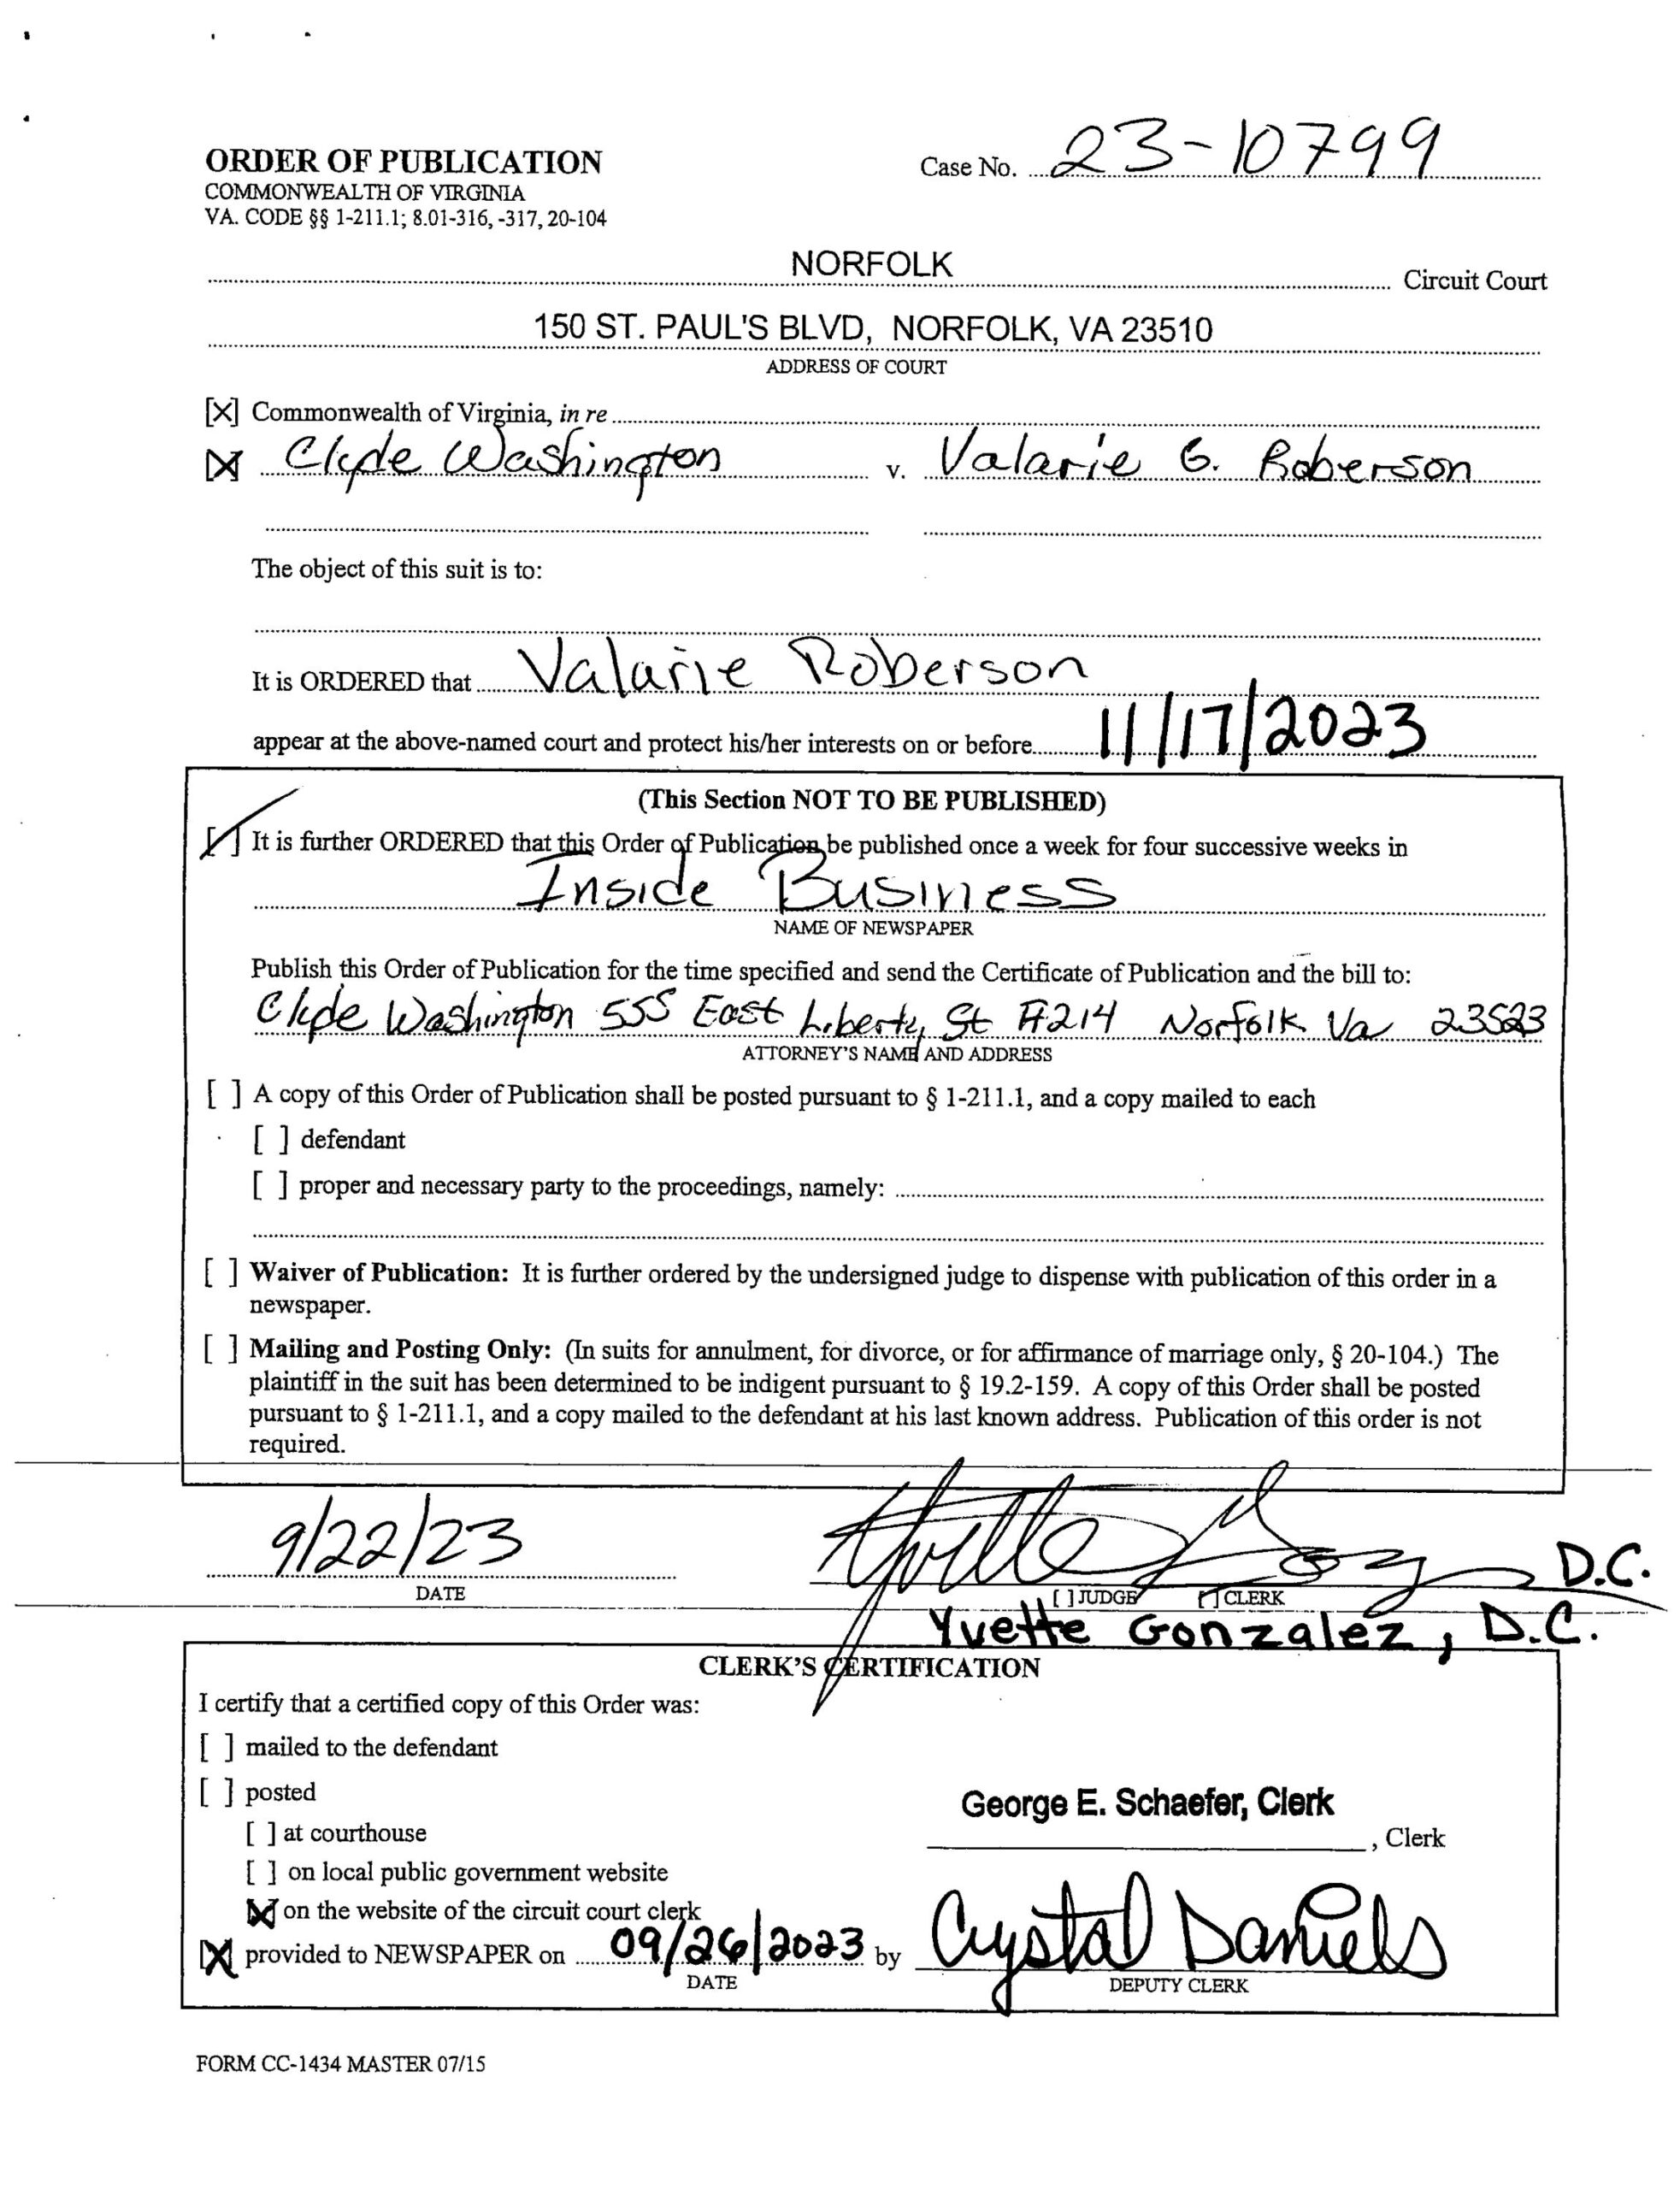 ORDER OF PUBLICATION
Case No. 23-10799
COMMONWEALTH OF VIRGINIA
VA. CODE §§ 1-211.1; 8.01-316, -317, 20-104
NORFOLK
Circuit Court
150 ST. PAUL'S BLVD, NORFOLK, VA 23510
ADDRESS OF COURT
[X] Commonwealth of Virginia, in re
[X] Clyde Washington v. Valarie G. Roberson
The object of this suit is to:
It is ORDERED that Valarie Roberson
appear at the above-named court and protect his/her interests on or before 11/17/2023
(This Section NOT TO BE PUBLISHED)
[✓] It is further ORDERED that this Order of Publication be published once a week for four successive weeks in
Inside Business
NAME OF NEWSPAPER
Publish this Order of Publication for the time specified and send the Certificate of Publication and the bill to:
Clyde Washington 555 East Liberty St #214 Norfolk Va 23523
ATTORNEY'S NAME AND ADDRESS
[ ] A copy of this Order of Publication shall be posted pursuant to § 1-211.1, and a copy mailed to each
[ ] defendant
[ ] proper and necessary party to the proceedings, namely:
[ ] Waiver of Publication: It is further ordered by the undersigned judge to dispense with publication of this order in a
newspaper.
[ ] Mailing and Posting Only: (In suits for annulment, for divorce, or for affirmance of marriage only, § 20-104.) The
plaintiff in the suit has been determined to be indigent pursuant to § 19.2-159. A copy of this Order shall be posted
pursuant to § 1-211.1, and a copy mailed to the defendant at his last known address. Publication of this order is not
required.
9/22/23
Yvette Goz D.C.
DATE
[ ] JUDGE [✓] CLERK
Yvette Gonzalez, D.C.
CLERK'S CERTIFICATION
I certify that a certified copy of this Order was:
[ ] mailed to the defendant
[ ] posted
George E. Schaefer, Clerk
[ ] at courthouse
, Clerk
[ ] on local public government website
[X] on the website of the circuit court clerk
[X] provided to NEWSPAPER on 09/26/2023 by Crystal Daniels
DATE
DEPUTY CLERK
FORM CC-1434 MASTER 07/15